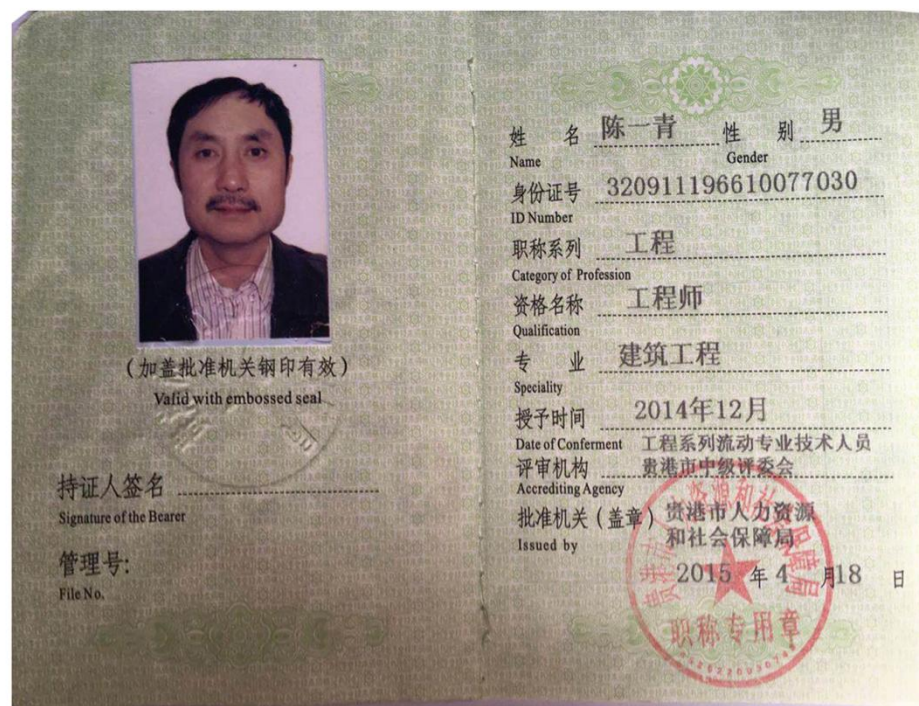 (加盖批准机关钢印有效)
Valid with embossed seal
持证人签名
Signature of the Bearer
管理号:
File No.
姓 名 陈一青 性 别 男
Name Gender
身份证号 320911196610077030
ID Number
职称系列 工程
Category of Profession
资格名称 工程师
Qualification
专 业 建筑工程
Speciality
授予时间 2014年12月
Date of Conferment 工程系列流动专业技术人员
评审机构 贵港市中级评委会
Accrediting Agency
批准机关(盖章) 贵港市人力资源
Issued by 和社会保障局
2015 年 4 月18 日
职称专用章